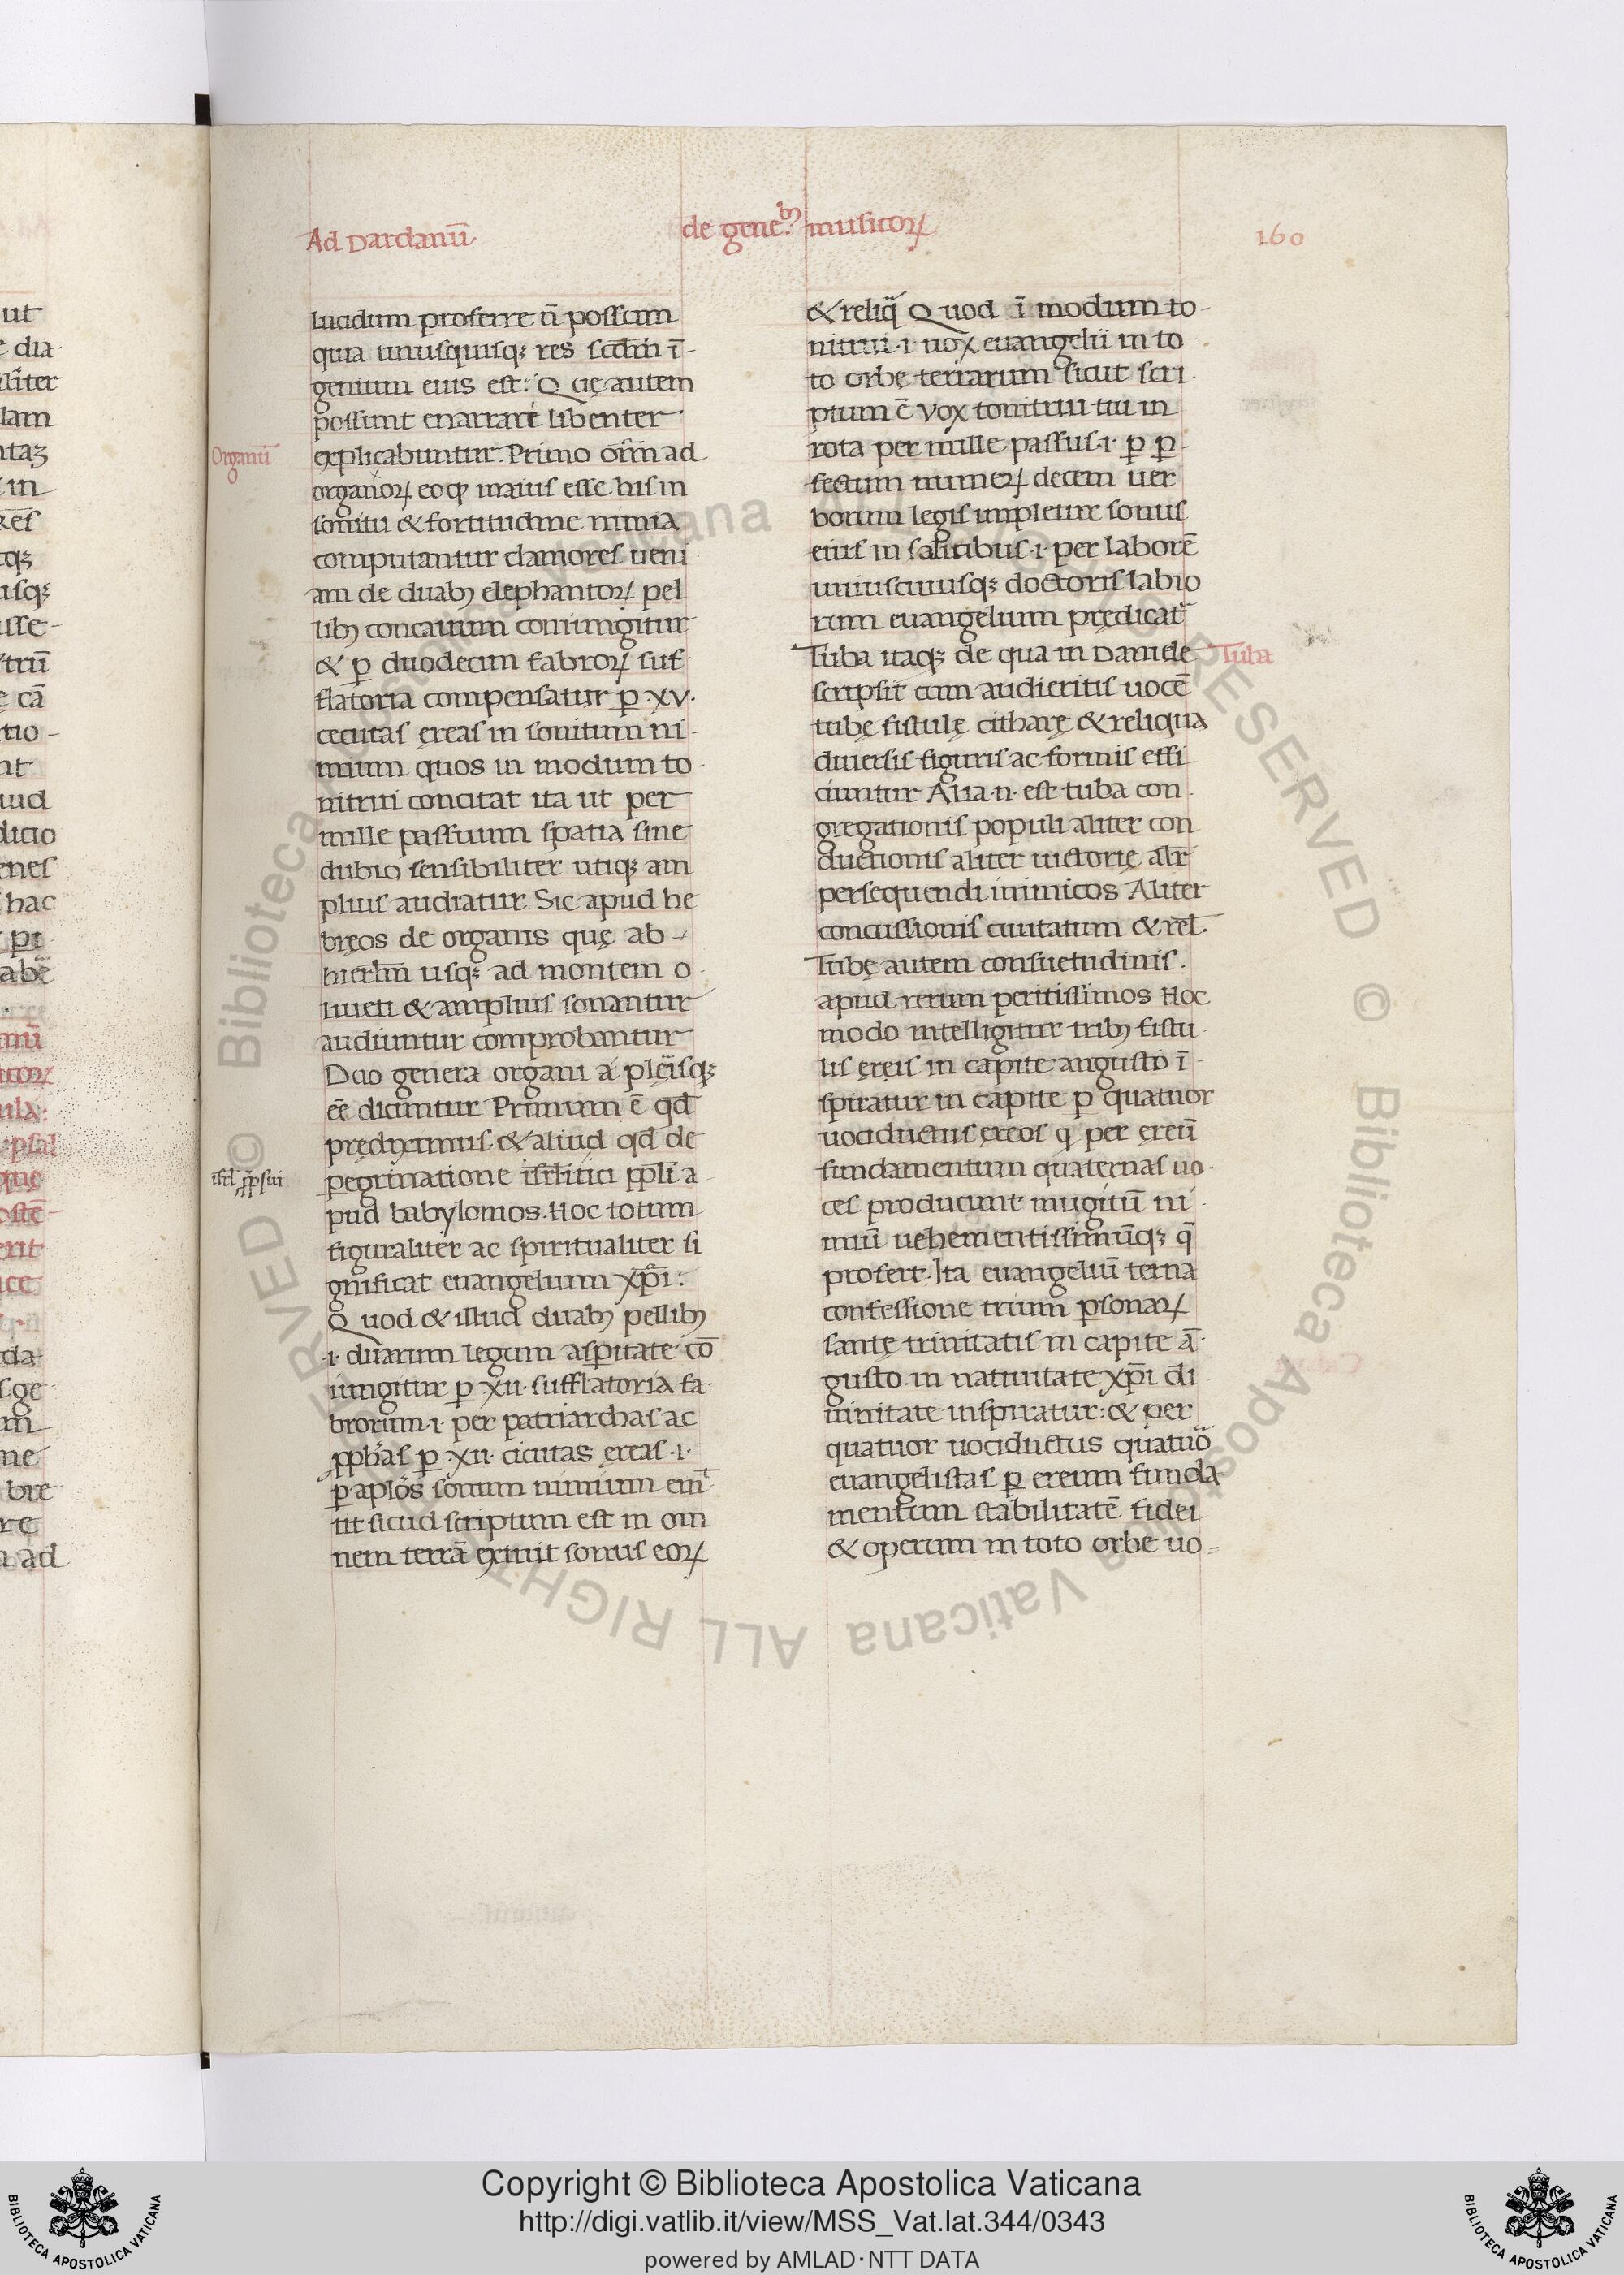 Ad Dardanū de geneꝝbꝫ musicoꝝ 160
lucidum proferre n̄ possum
quia unusquisqꝫ res scdm ī-
genium eius est: Quę autem
possunt enarrari libenter
explicabuntur. Primo om̄ ad
Organū
organoꝝ eo qꝫ maius esse his in
sonitu & fortitudine nimia
computantur clamores ueni
am de duabꝫ elephantoꝝ pel
libꝫ concauum coniungitur
& ꝑ duodecim fabroꝝ suf
flatoria compensatur ꝑ ·xv·
cecutas ęreas in sonitum ni-
mium quos in modum to-
nitrui concitat ita ut per
mille passuum spatia sine
dubio sensibiliter utiqꝫ am
plius audiatur. Sic apud he
bręos de organis quę ab-
hierłm usqꝫ ad montem o
liueti & amplius sonantur
audiuntur comprobantur
Duo genera organi a plęiisqꝫ
ēē dicuntur Primum ē qd̄
prędiximus. & aliud qd̄ de
isr̄l ꝓpsiu
pegrinatione isrłitici ppłi a
pud babylonios. Hoc totum
figuraliter ac spiritualiter si
gnificat euangelium xp̄i:
Quod & illud duabꝫ pellibꝫ
·i· duarum legum aspitate cō
iungitur ꝑ ·xii· sufflatoria fa-
brorum ·i· per patriarchas ac
ꝓphas ꝑ ·xii· cicutas ęreas ·i·
ꝑ aplōs sonum nimium emͭ
tit sicud scriptum est in om
nem terrā exiuit sonus eoꝝ
& reliq̄ Quod ī modum to-
nitrui ·i· uox euangelii in to
to orbę terrarum sicut scri-
ptum ē vox tonitrui tui in
rota per mille passus ·i· ꝑ ꝑ-
fectum numeꝝ decem uer
borum legis impletur sonus
eius in salitibus ·i· per laborē
uniuscuiusqꝫ doctoris labio
rum euangelium prędicat͛
Tuba itaqꝫ de qua in Daniele
Tuba
scripsit cum audieritis uocē
tubę fistulę citharę & reliqua
diuersis figuris ac formis effi
ciuntur Alia ·n· est tuba con-
gregationis populi aliter con
ductionis aliter uictorię alr̄
persequendi inimicos Aliter
concussionis ciuitatum & rel̄.
Tubę autem consuetudinis.
apud rerum peritissimos Hoc
modo intelligitur tribꝫ fistu-
lis ęręis in capite angusto ī-
spiratur in capite p quatuor
uociductus ęreos q̨ per ęreū
fundamentum quaternas uo-
ces producunt mugitū ni-
miū uehementissimūqꝫ q̄
profert. Ita euangeliū terna
confessione trium ꝑsonaꝝ
santę trinitatis in capite ā-
gusto. in natiuitate xp̄i di
uinitate inspiratur: & per
quatuor uociductus quatuō
euangelistas ꝑ ereum funda
mentum stabilitatē fidei
& operum in toto orbe uo-
Copyright © Biblioteca Apostolica Vaticana
http://digi.vatlib.it/view/MSS_Vat.lat.344/0343
powered by AMLAD·NTT DATA